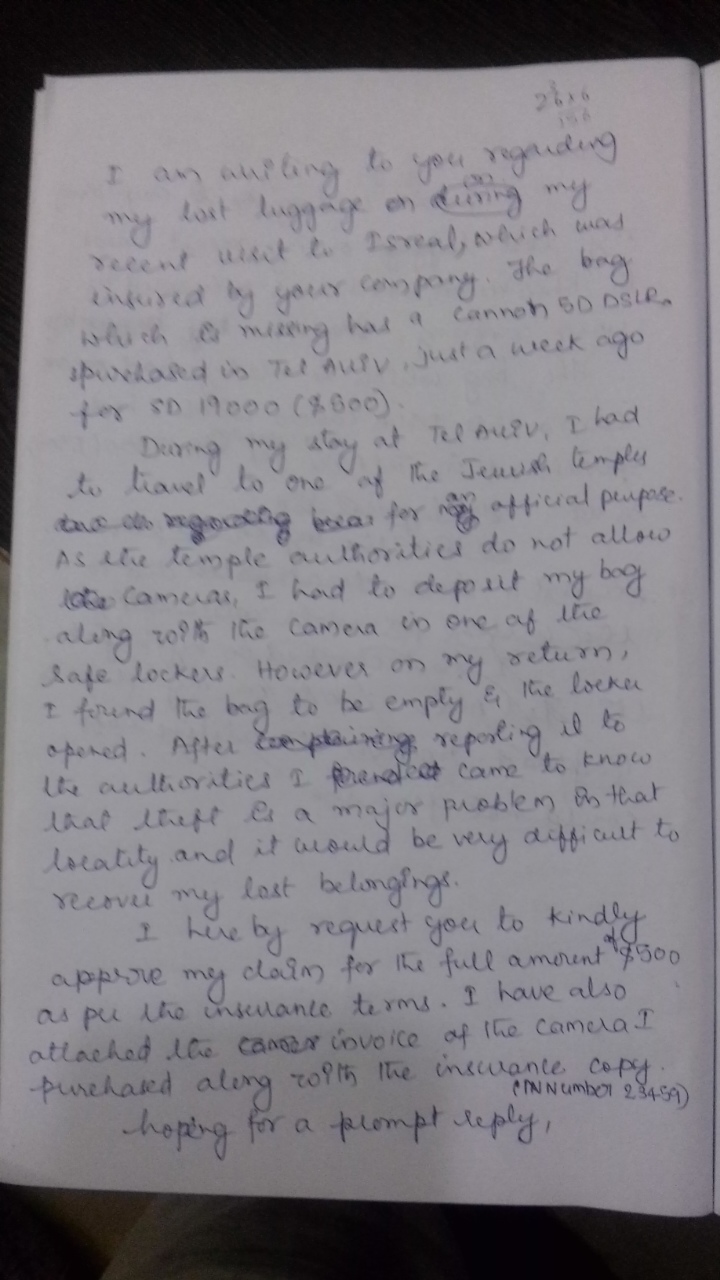 26x6
156
I am writing to you regarding
my lost luggage on during on my
recent visit to Isreal, which was
insured by your company. The bag
which is missing has a cannon 5D DSLR
purchased in Tel AUIV, just a week ago
for SD 19000 ($500).
During my stay at Tel AUIV, I had
to travel to one of the Jewish temples
for an official purpose.
As the temple authorities do not allow
cameras, I had to deposit my bag
along with the camera in one of the
safe lockers. However on my return,
I found the bag to be empty & the locker
opened. After complaining reporting it to
the authorities I came to know
that theft is a major problem in that
locality and it would be very difficult to
recover my lost belongings.
I here by request you to kindly
approve my claim for the full amount of $500
as per the insurance terms. I have also
attached the invoice of the camera I
purchased along with the insurance copy.
(IN Number 23459)
hoping for a prompt reply,